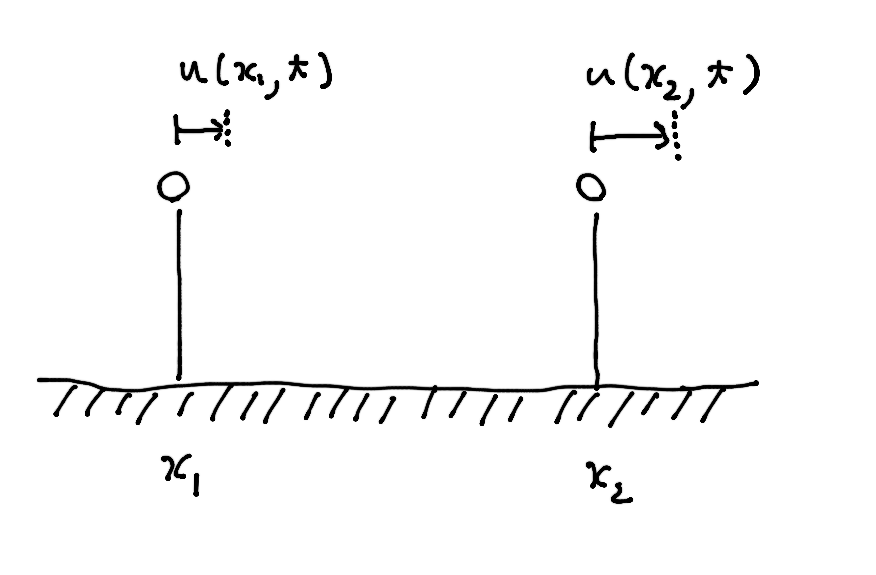 u(x₁,t)
u(x₂,t)
x₁
x₂